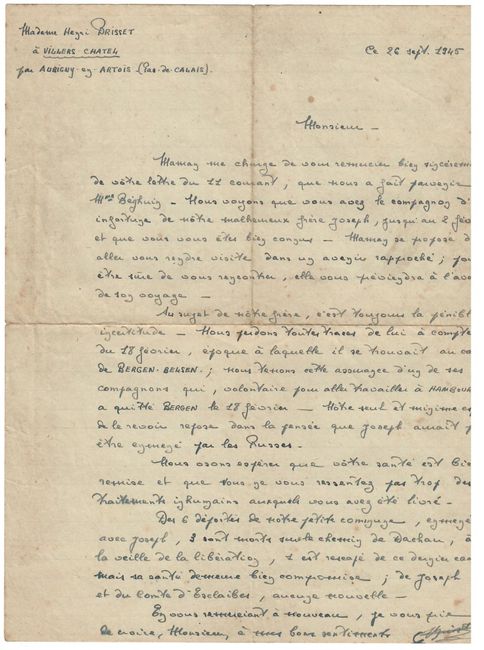 Madame Henri BRISSET
à VILLERS CHATEL
par AUBIGNY-en-ARTOIS (Pas-de-CALAIS).
Ce 26 sept. 1945
Monsieur -
Maman me charge de vous remercier bien sincèrem
de vôtre lettre du 11 courant, que nous a fait parvenir
Mme Béghin - Nous voyons que vous avez le compagnon d'
infortune de nôtre malheureux frère Joseph, jusqu'au 2 fév
et que vous vous êtes bien connus - Maman se propose d
aller vous rendre visite dans un avenir rapproché ; pou
être sûre de vous rencontrer, elle vous préviendra à l'ava
de son voyage -
Au sujet de nôtre frère, c'est toujours la pénibl
incertitude - Nous perdons toutes traces de lui à compte
du 18 février, époque à laquelle il se trouvait au ca
de BERGEN-BELSEN. ; nous tenons cette assurance d'un de ses
compagnons qui, volontaire pour aller travailler à HAMBOUR
a quitté BERGEN le 18 février - Nôtre seul et minime es
de le revoir repose dans la pensée que Joseph aurait p
être emmené par les Russes -
Nous osons espérer que vôtre santé est bie
remise et que vous ne vous ressentez pas trop des
traitements inhumains auxquels vous avez été livré -
Des 6 déportés de nôtre petite commune, emmené
avec Joseph, 3 sont morts sur le chemin de Dachau, à
la veille de la libération, 1 est rescapé de ce dernier cam
mais sa santé demeure bien compromise ; de Joseph
et du Comte d'Esclaibes, aucune nouvelle -
En vous remerciant à nouveau, je vous prie
de croire, Monsieur, à mes bons sentiments